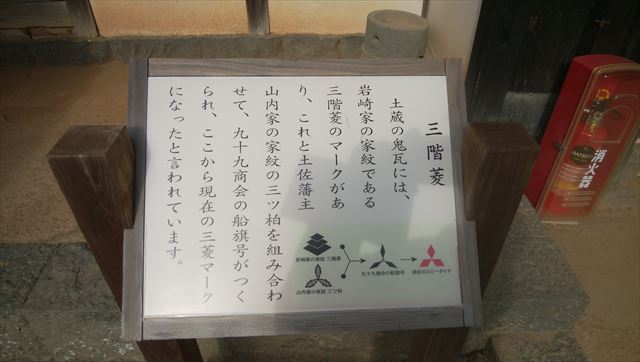 三階菱
土蔵の鬼瓦には、
岩崎家の家紋である
三階菱のマークがあ
り、これと土佐藩主
山内家の家紋の三ツ柏を組み合わ
せて、九十九商会の船旗号がつく
られ、ここから現在の三菱マーク
になったと言われています。
岩崎家の家紋 三階菱
山内家の家紋 三ツ柏
九十九商会の船旗号
現在のスリーダイヤ
消火器